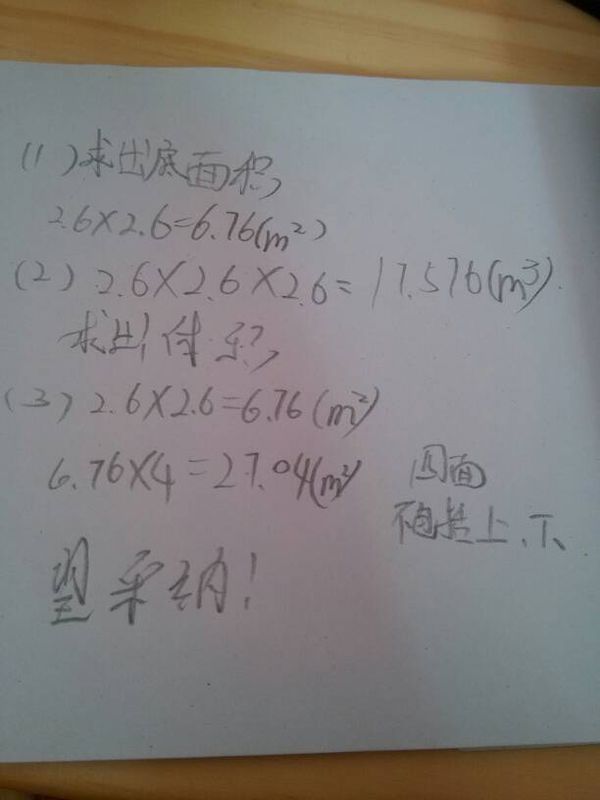 (1)求出底面积,
2.6×2.6=6.76(m²)
(2) 2.6×2.6×2.6=17.576(m³).
求出体积,
(3) 2.6×2.6=6.76(m²)
6.76×4=27.04(m²) 四面
不包括上、下、
望采纳!